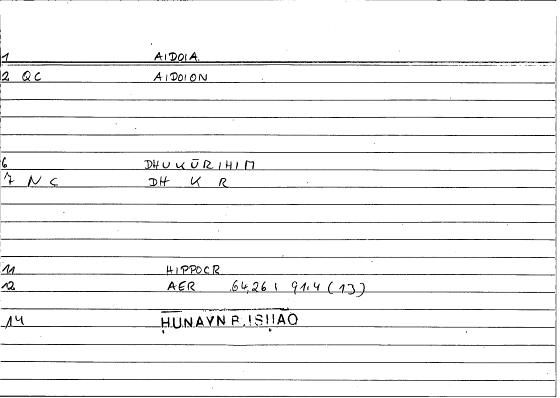 1 AIDOIA
2 QC AIDOION
6 DHUKŪRIHIM
7 NC DH K R
11 HIPPOCR
12 AER 64,26 : 91.4 (13)
14 ḤUNAYN B. ISḤAQ